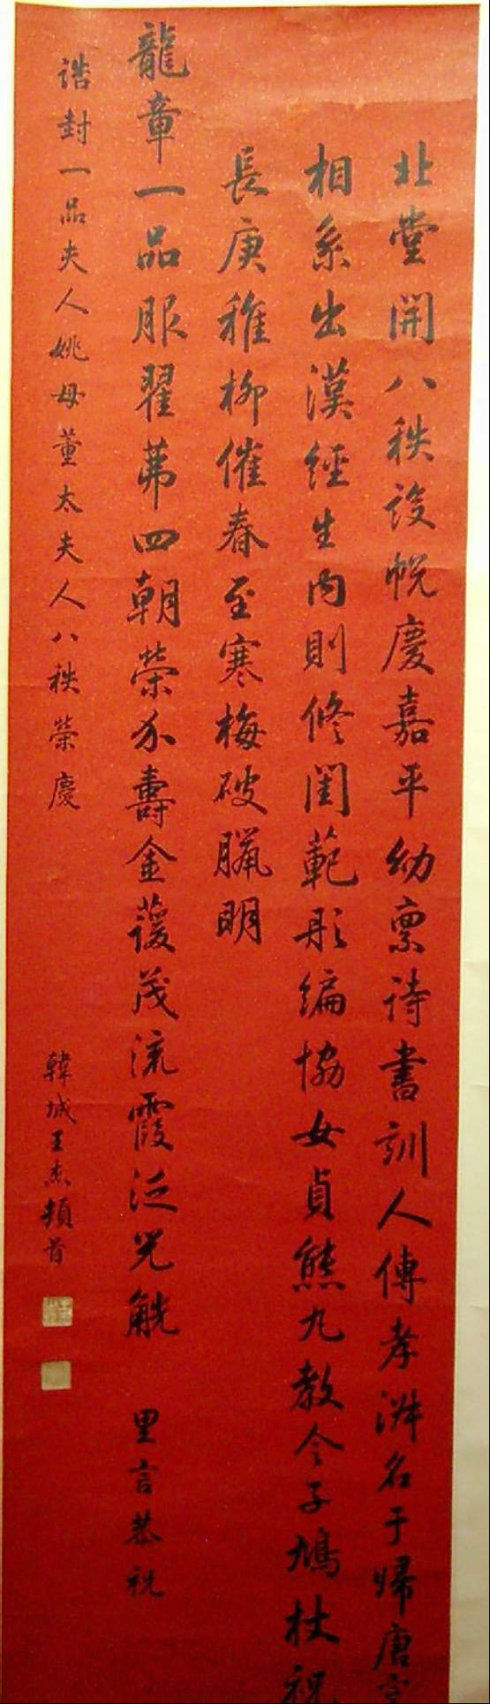 北堂開八秩設帨慶嘉平幼稟詩書訓人傳孝淑名于歸唐宰
相系出漢經生內則修閨範彤編協女貞熊九教令子鳩杖祝
長庚稚柳催春至寒梅破臘明
龍章一品服翟茀四朝榮介壽金蘐茂流霞泛兕觥 里言恭祝
誥封一品夫人姚母董太夫人八秩榮慶
韓城王杰頓首